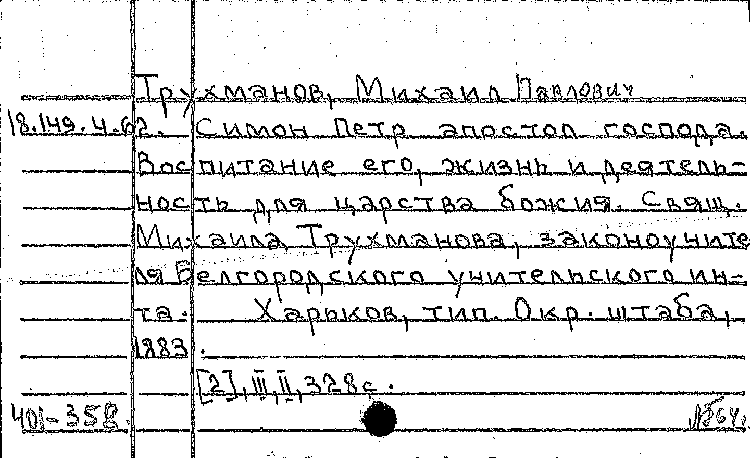 Трухманов, Михаил Павлович
18.149.4.62. Симон Петр апостол господа.
Воспитание его, жизнь и деятель-
ность для царства божия. Свящ.
Михаила Трухманова, законоучите
ля Белгородского учительского ин-
та. Харьков, тип. Окр. штаба,
1883.
[2], III, II, 328 с.
401-358.